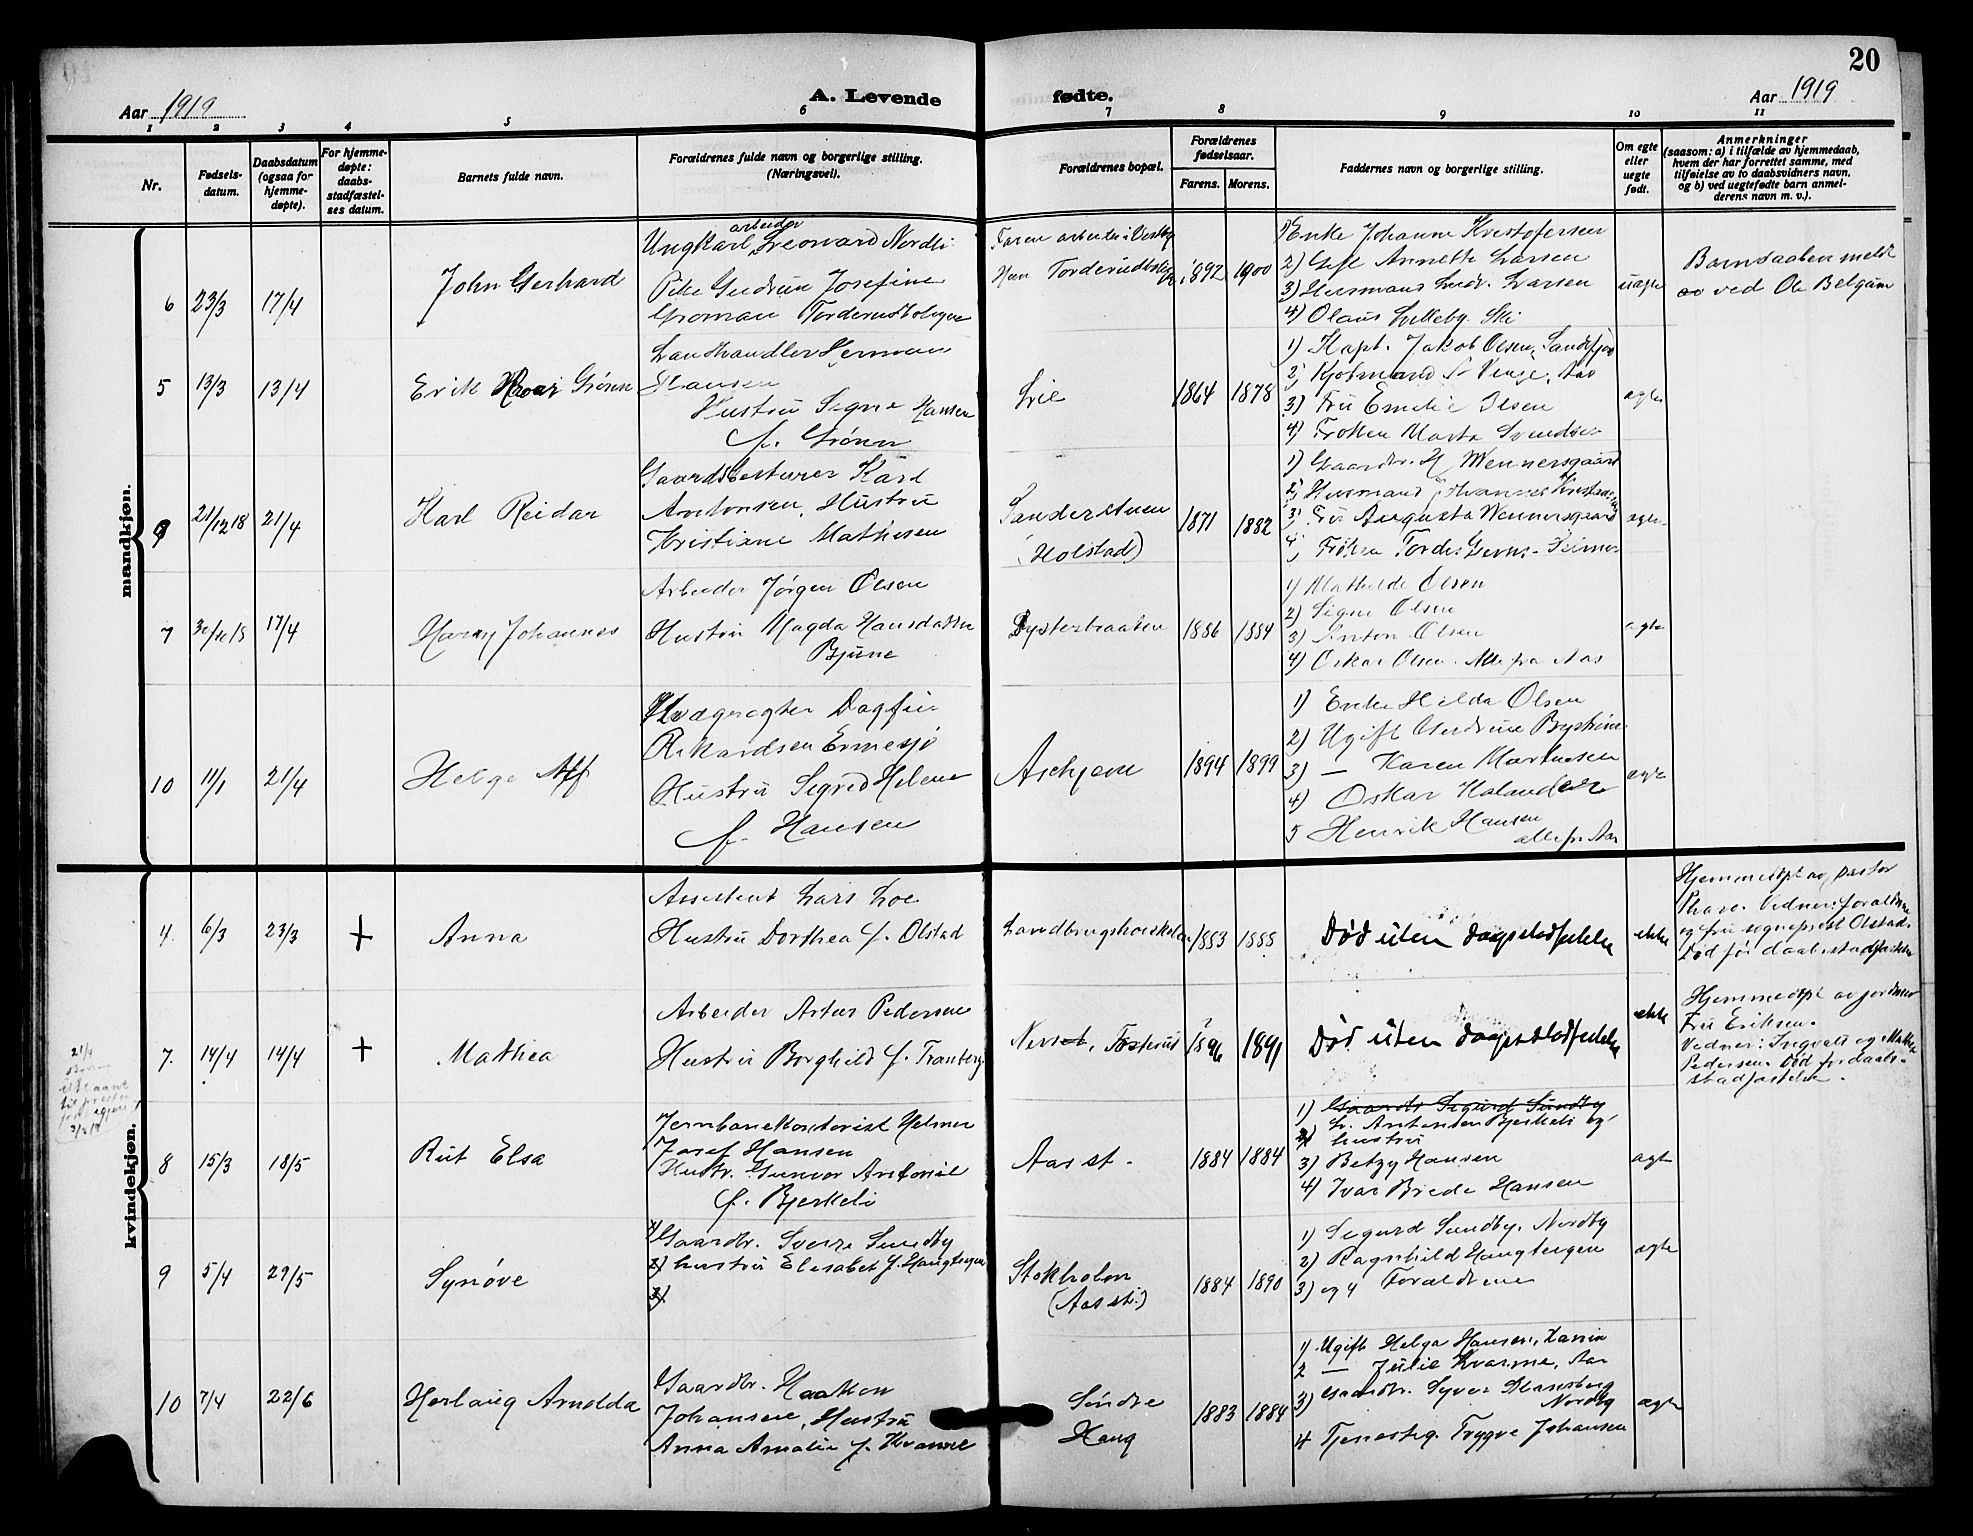 20
Aar 1919
A. Levende fødte.
Aar 1919
1 2 3 4 5 6 7 8 9 10 11
Nr.
Fødsels-
datum.
Daabsdatum
(ogsaa for
hjemme-
døpte).
For hjemme-
døpte:
daabs-
stadfæstel-
ses datum.
Barnets fulde navn.
Forældrenes fulde navn og borgerlige stilling.
(Næringsvei).
Forældrenes bopæl.
Forældrenes
fødselsaar.
Farens. Morens.
Faddernes navn og borgerlige stilling.
Om egte
eller
uegte
født.
Anmerkninger
(saasom: a) i tilfælde av hjemmedaab,
hvem der har forrettet samme, med
tilføielse av to daabsvidners navn,
og b) ved uegtefødte barn anmel-
derens navn m. v.).
mandkjøn.
6 23/3 17/4
John Gerhard
arbeider
Ungkarl Leonard Nordli
Pike Gudrun Josefine
Groman Torderudboligen
Faren arbeider i Vestby
Hun Torderudbolig
1892 1900
1) Enke Johanne Kristofersen
2) Gift Annette Larsen
3) Husmand Ludv. Larsen
4) Olaus Lykkeby. Ski
uægte
Barnsaaben meldt
av ved Ole Belgum
5 13/3 13/4
Erik Roar Grøner
Landhandler Herman
Hansen
Hustru Signe Hansen
f. Grøner
Lie
1864 1878
1) Kapt. Jakob Olsen, Sandefj
2) Kjøbmand Venge, Aas
3) Fru Emelie Olsen
4) Frøken Marta Svendsen
ægte
9 21/12 18 21/4
Karl Reidar
Gaardsbestyrer Karl
Antonsen, Hustru
Kristiane Mathisen
Sanderstuen
(Holstad)
1871 1882
1) Gaardbr. H Wennersgaard
2) Husmand Johannes Kristiansen
3) Fru Augusta Wennersgaard
4) Frøken Tordis
ægte
7 30/11 18 17/4
Harry Johannes
Arbeider Jørgen Olsen
Hustru Magda Hansdatter
Bjune
Dysterbraaten
1886 1884
1) Mathilde Olsen
2) Signe Olsen
3) Anton Olsen
4) Oskar Olsen. Alle fra Aas
ægte
10 11/1 21/4
Helge Alf
Kvægrøgter Dagfin
Rikardsen Ennesjø
Hustru Sigrid Helene
f. Hansen
Askjem
1894 1899
1) Enke Hilda Olsen
2) Ugift Gudrun Bystrøm
3) — Karen Martinsen
4) Oskar Holander
5 Henrik Hansen
alle fr Aas
ægte
kvindekjøn.
4. 6/3 23/3 +
Anna
Assistent Lars Loe
Hustru Dorthea f. Olstad
Landbrugshøiskolen
1883 1885
Død uten daapsstadfestelse
ekte
Hjemmedøpt av pastor
Thare. Vidner: foraldrene
og fru sogneprest Olstad.
Død før daabsstadfæstelse
7. 14/4 14/4 +
Mathea
Arbeider Artur Pedersen
Hustru Borghild f. Tranberg
Nerset, Fosterud
1896 1891
Død uten daapsstadfestelse
ekte
Hjemmedøpt av jordmor
Fru Eriksen.
Vidner: Ingvald og Mathea
Pedersen. Død før daab-
stadfæstelse.
8 15/3 18/5
Rut Elsa
Jernbanekontorist Helmer
Josef Hansen
Hustr. Gunvor Antonie
f. Bjerkeli
Aas st.
1884 1884
1) Gaardb Sigurd Sundby
Antonsen Bjerkeli og
2) hustru
3) Betzy Hansen
4) Ivar Brede Hansen
ægte
9 5/4 29/5
Synøve
1) Gaardbr. Sverre Sundby
2) hustru Elisabet f. Haugbergen
3)
Stokholm
(Aas st.)
1884 1890
1) Sigurd Sundby. Nordby
2) Ragnhild Haugbergen
3) og 4 Foraldrene
ægte
10 7/4 22/6
Herlaug Arnolda
Gaardbr. Haakon
Johansen, Hustru
Anna Amalie f. Kvarme
Søndre
Haug
1883 1884
1) Ugift Helga Hansen,
2 — Julie Kvarme, Aas
3) Gaardbr. Syver
Nordby
4 Tjenesteg. Trygve Johansen
ægte